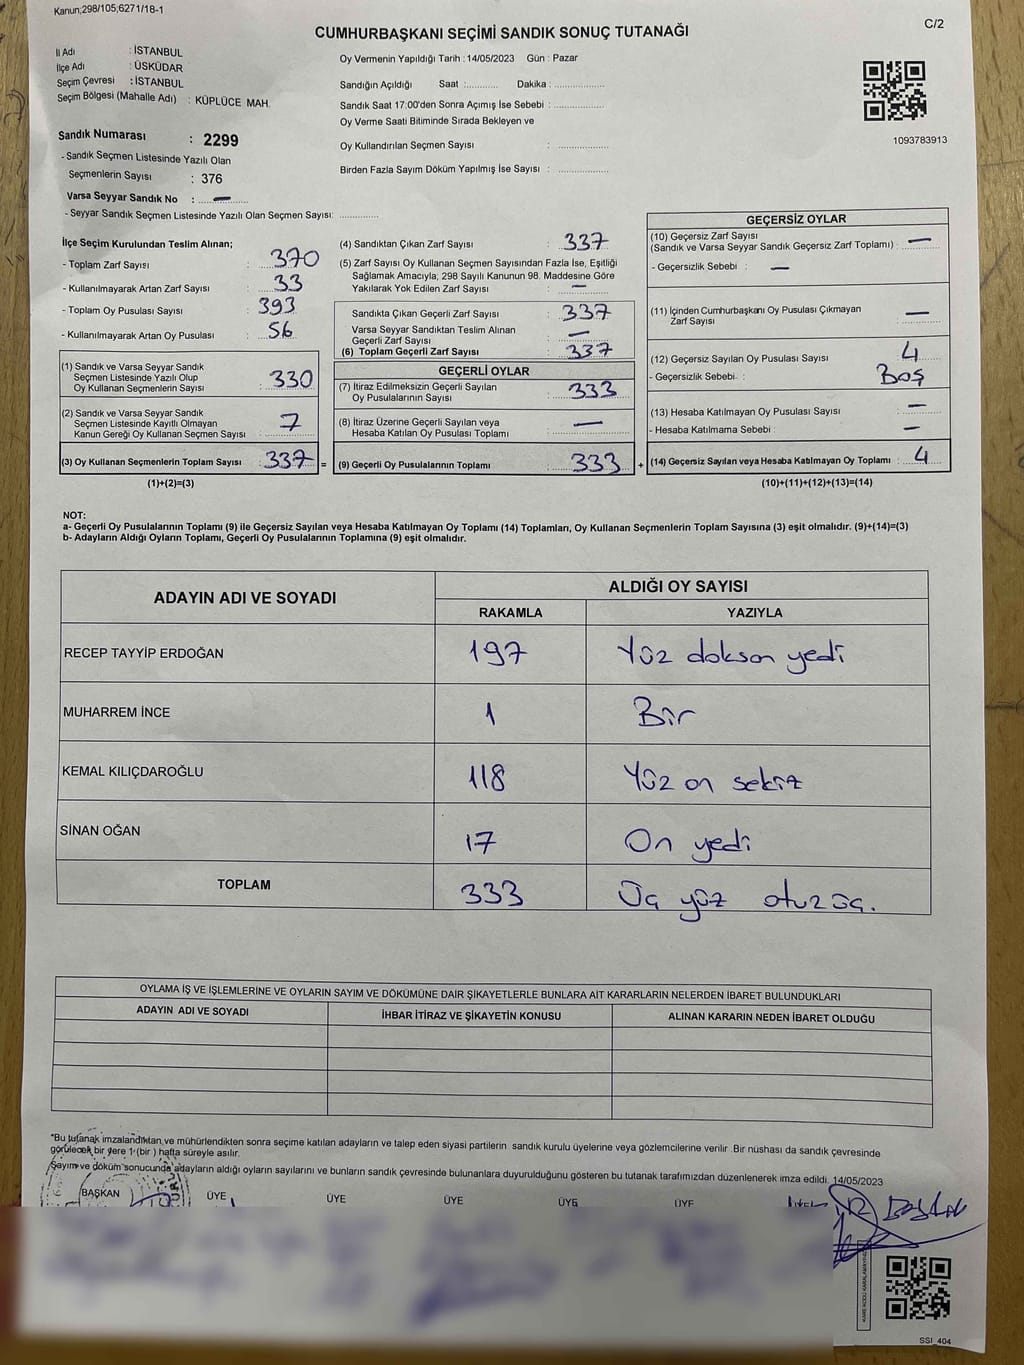 Kanun;298/105;6271/18-1
C/2
CUMHURBAŞKANI SEÇİMİ SANDIK SONUÇ TUTANAĞI
İl Adı : İSTANBUL
İlçe Adı : ÜSKÜDAR
Seçim Çevresi : İSTANBUL
Seçim Bölgesi (Mahalle Adı) : KÜPLÜCE MAH.
Sandık Numarası : 2299
- Sandık Seçmen Listesinde Yazılı Olan
Seçmenlerin Sayısı : 376
Varsa Seyyar Sandık No : —
- Seyyar Sandık Seçmen Listesinde Yazılı Olan Seçmen Sayısı: ..............
Oy Vermenin Yapıldığı Tarih : 14/05/2023 Gün : Pazar
Sandığın Açıldığı Saat :............ Dakika : ..................
Sandık Saat 17:00'den Sonra Açımış İse Sebebi : ..................
Oy Verme Saati Bitiminde Sırada Bekleyen ve
Oy Kullandırılan Seçmen Sayısı : ..................
Birden Fazla Sayım Döküm Yapılmış İse Sayısı : ..................
1093783913
İlçe Seçim Kurulundan Teslim Alınan;
- Toplam Zarf Sayısı : 370
- Kullanılmayarak Artan Zarf Sayısı : 33
- Toplam Oy Pusulası Sayısı : 393
- Kullanılmayarak Artan Oy Pusulası : 56
(1) Sandık ve Varsa Seyyar Sandık
Seçmen Listesinde Yazılı Olup
Oy Kullanan Seçmenlerin Sayısı : 330
(2) Sandık ve Varsa Seyyar Sandık
Seçmen Listesinde Kayıtlı Olmayan
Kanun Gereği Oy Kullanan Seçmen Sayısı : 7
(3) Oy Kullanan Seçmenlerin Toplam Sayısı : 337 =
(1)+(2)=(3)
(4) Sandıktan Çıkan Zarf Sayısı : 337
(5) Zarf Sayısı Oy Kullanan Seçmen Sayısından Fazla İse, Eşitliği
Sağlamak Amacıyla; 298 Sayılı Kanunun 98. Maddesine Göre
Yakılarak Yok Edilen Zarf Sayısı : —
Sandıkta Çıkan Geçerli Zarf Sayısı : 337
Varsa Seyyar Sandıktan Teslim Alınan
Geçerli Zarf Sayısı : —
(6) Toplam Geçerli Zarf Sayısı : 337
GEÇERLİ OYLAR
(7) İtiraz Edilmeksizin Geçerli Sayılan
Oy Pusulalarının Sayısı : 333
(8) İtiraz Üzerine Geçerli Sayılan veya
Hesaba Katılan Oy Pusulası Toplamı : —
(9) Geçerli Oy Pusulalarının Toplamı : 333 +
GEÇERSİZ OYLAR
(10) Geçersiz Zarf Sayısı
(Sandık ve Varsa Seyyar Sandık Geçersiz Zarf Toplamı) : —
- Geçersizlik Sebebi : —
(11) İçinden Cumhurbaşkanı Oy Pusulası Çıkmayan
Zarf Sayısı : —
(12) Geçersiz Sayılan Oy Pusulası Sayısı : 4
- Geçersizlik Sebebi : Boş
(13) Hesaba Katılmayan Oy Pusulası Sayısı : —
- Hesaba Katılmama Sebebi : —
(14) Geçersiz Sayılan veya Hesaba Katılmayan Oy Toplamı : 4
(10)+(11)+(12)+(13)=(14)
NOT:
a- Geçerli Oy Pusulalarının Toplamı (9) ile Geçersiz Sayılan veya Hesaba Katılmayan Oy Toplamı (14) Toplamları, Oy Kullanan Seçmenlerin Toplam Sayısına (3) eşit olmalıdır. (9)+(14)=(3)
b- Adayların Aldığı Oyların Toplamı, Geçerli Oy Pusulalarının Toplamına (9) eşit olmalıdır.
ADAYIN ADI VE SOYADI ALDIĞI OY SAYISI
RAKAMLA YAZIYLA
RECEP TAYYİP ERDOĞAN 197 Yüz doksan yedi
MUHARREM İNCE 1 Bir
KEMAL KILIÇDAROĞLU 118 Yüz on sekiz
SİNAN OĞAN 17 On yedi
TOPLAM 333 Üç yüz otuz üç.
OYLAMA İŞ VE İŞLEMLERİNE VE OYLARIN SAYIM VE DÖKÜMÜNE DAİR ŞİKAYETLERLE BUNLARA AİT KARARLARIN NELERDEN İBARET BULUNDUKLARI
ADAYIN ADI VE SOYADI İHBAR İTİRAZ VE ŞİKAYETİN KONUSU ALINAN KARARIN NEDEN İBARET OLDUĞU
"Bu tutanak imzalandıktan ve mühürlendikten sonra seçime katılan adayların ve talep eden siyasi partilerin sandık kurulu üyelerine veya gözlemcilerine verilir. Bir nüshası da sandık çevresinde
görülecek bir yere 1 (bir) hafta süreyle asılır.
Sayım ve döküm sonucunda adayların aldığı oyların sayılarını ve bunların sandık çevresinde bulunanlara duyurulduğunu gösteren bu tutanak tarafımızdan düzenlenerek imza edildi. 14/05/2023
BAŞKAN ÜYE ÜYE ÜYE ÜYE ÜYE
SSI_404